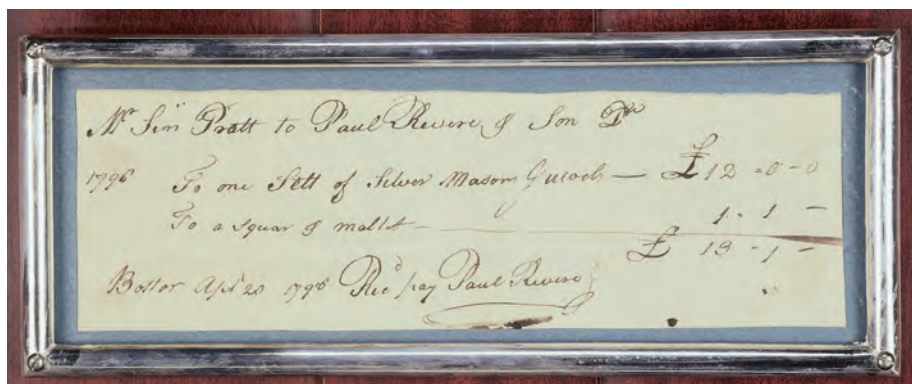 Mr Sim Pratt to Paul Revere & Son Dr
1796 To one Sett of Silver Masons — £ 12 -0 -0
To a Squar & mallet — 1 - 1 -
£ 13 - 1 -
Boston Apl 20 1796 Recd pay Paul Revere